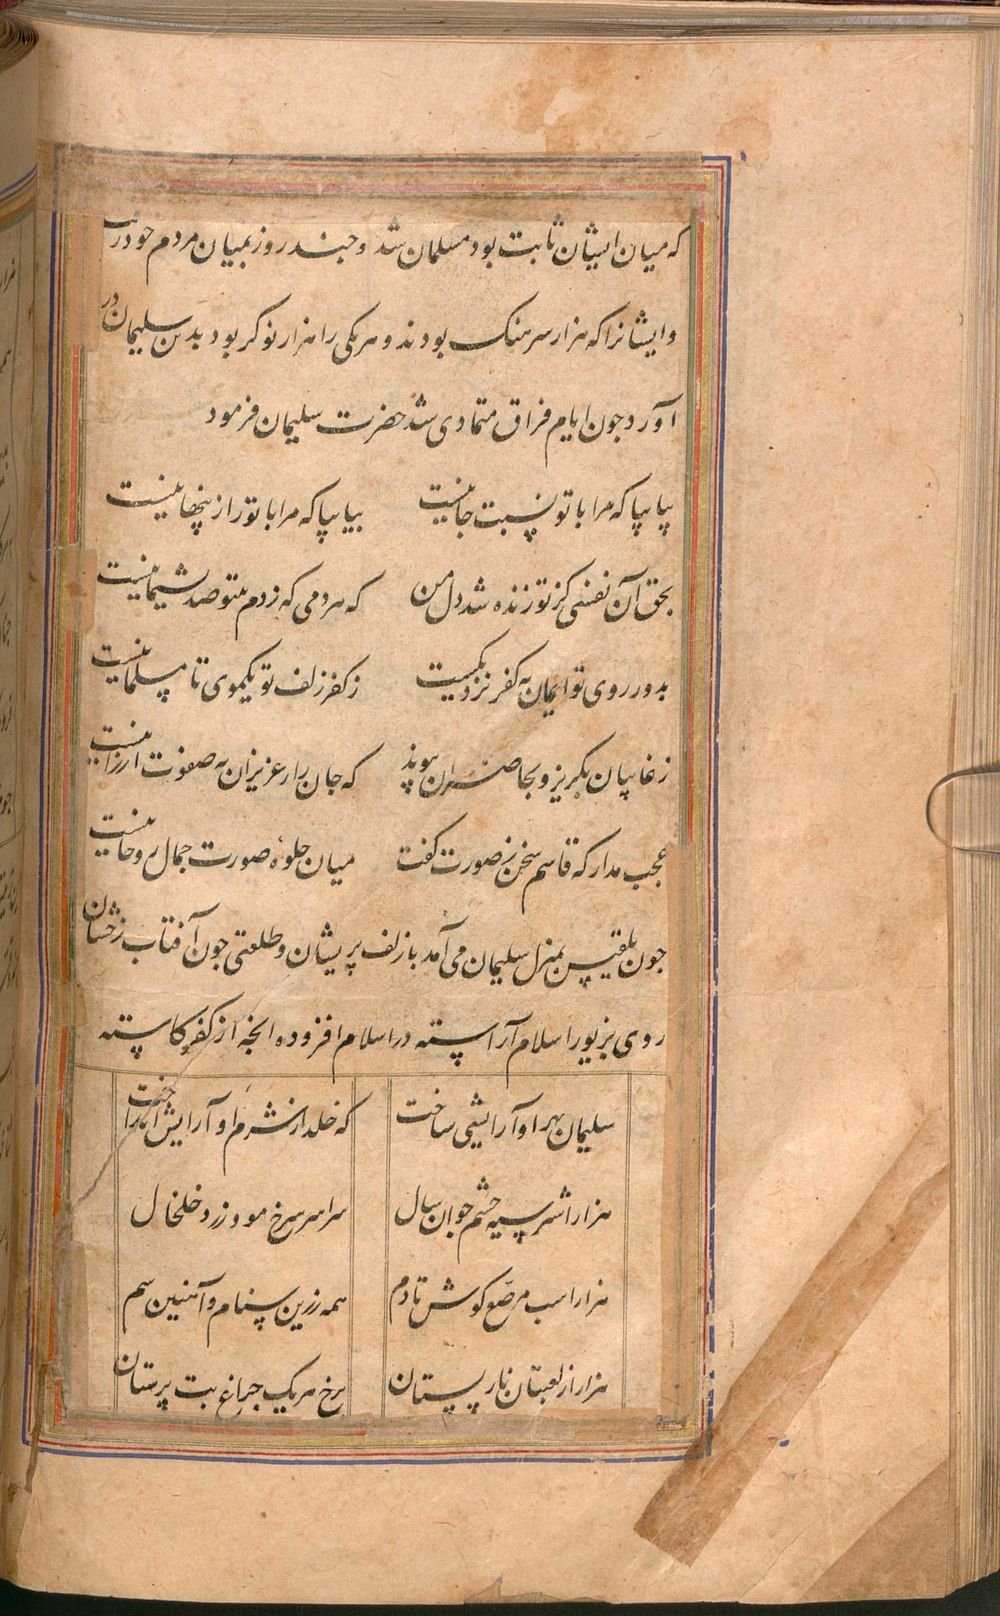 که میان ایشان ثابت بود مسلمان شد و جند روز بمیان مردم خود رفت
و ایشانرا که هزار سرهنک بودند و هر یکی را هزار نوکر بود بدین سلیمان در
آورد جون ایام فراق متمادی شد حضرت سلیمان فرمود
بیا بیا که مرا با تو نسبت جانیست بیا بیا که مرا با تو راز پنهانیست
بحق آن نفسی کز تو زنده شد دل من که هر دمی که زدم بیتو صد پشیمانیست
بدور روی تو ایمان به کفر نزدیکست ز کفر زلف تو یکموی تا مسلمانیست
ز غایبان بگریز و بحاضران پیوند که جان عزیزان به صفوت ارزانیست
عجب مدار که قاسم سخن ز صورت کفت میان جلوه صورت جمال روحانیست
جون بلقیس بمنزل سلیمان می آمد با زلف پریشان و طلعتی جون آفتاب رخشان
روی بزیور اسلام آراسته در اسلام افزوده انجه از کفر کاسته
سلیمان بهر او آرایشی ساخت که خلد از شرم او آرایش انداخت
هزار اشتر سیه چشم جوان سال سراسر سرخ مو و زرد خلخال
هزار اسب مرصع کوش تا دم همه زرین ستام و آهنین سم
هزار از لعبتان نار پستان برخ هر یک جراغ بت پرستان